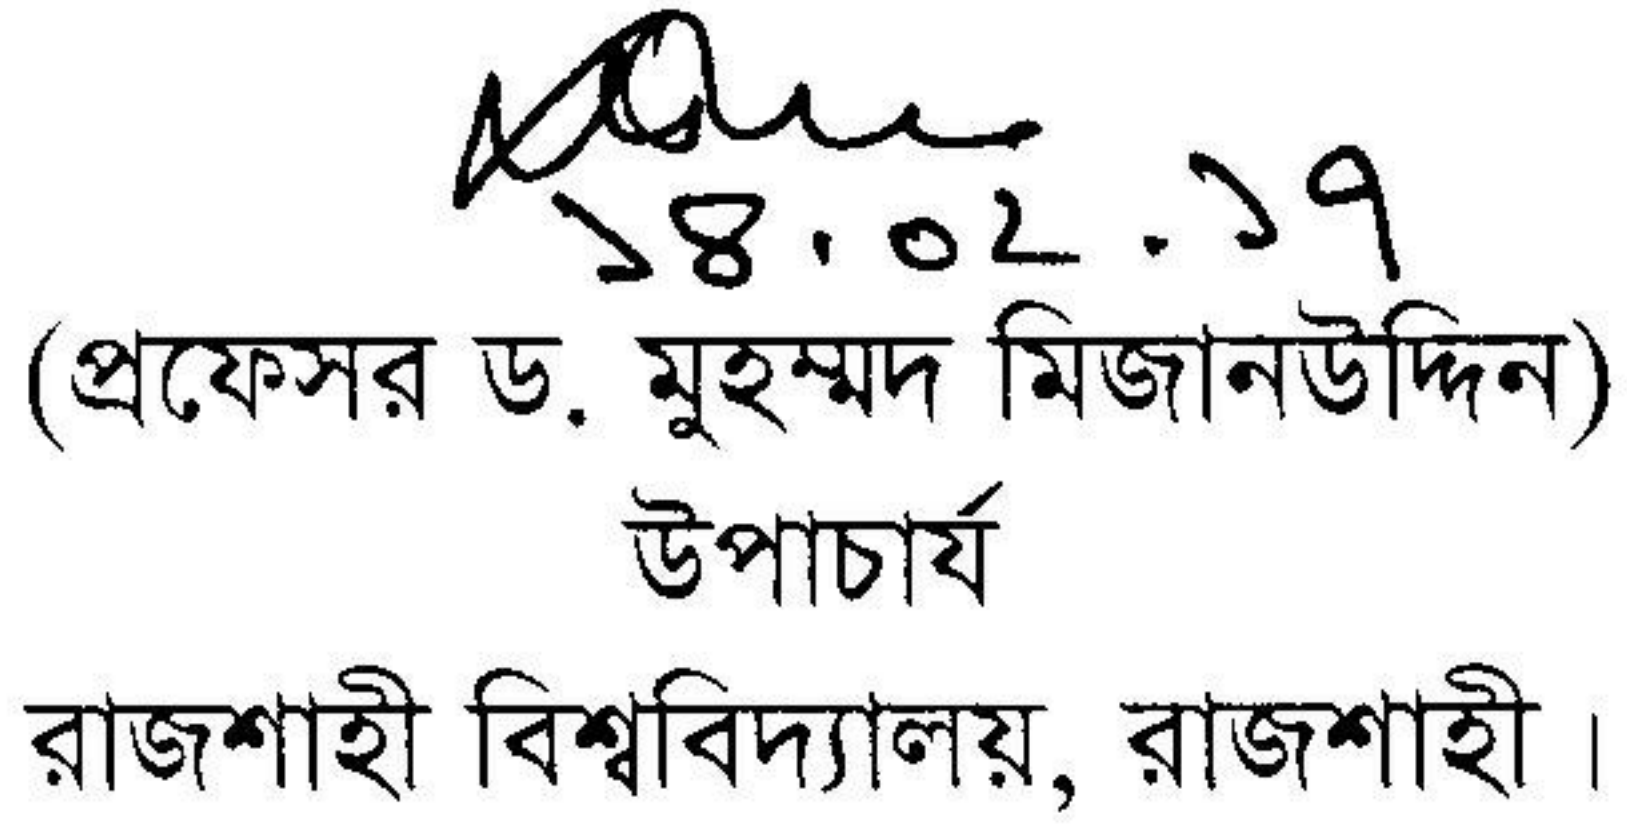 ১৪.০২.১৭
(প্রফেসর ড. মুহম্মদ মিজানউদ্দিন)
উপাচার্য
রাজশাহী বিশ্ববিদ্যালয়, রাজশাহী।